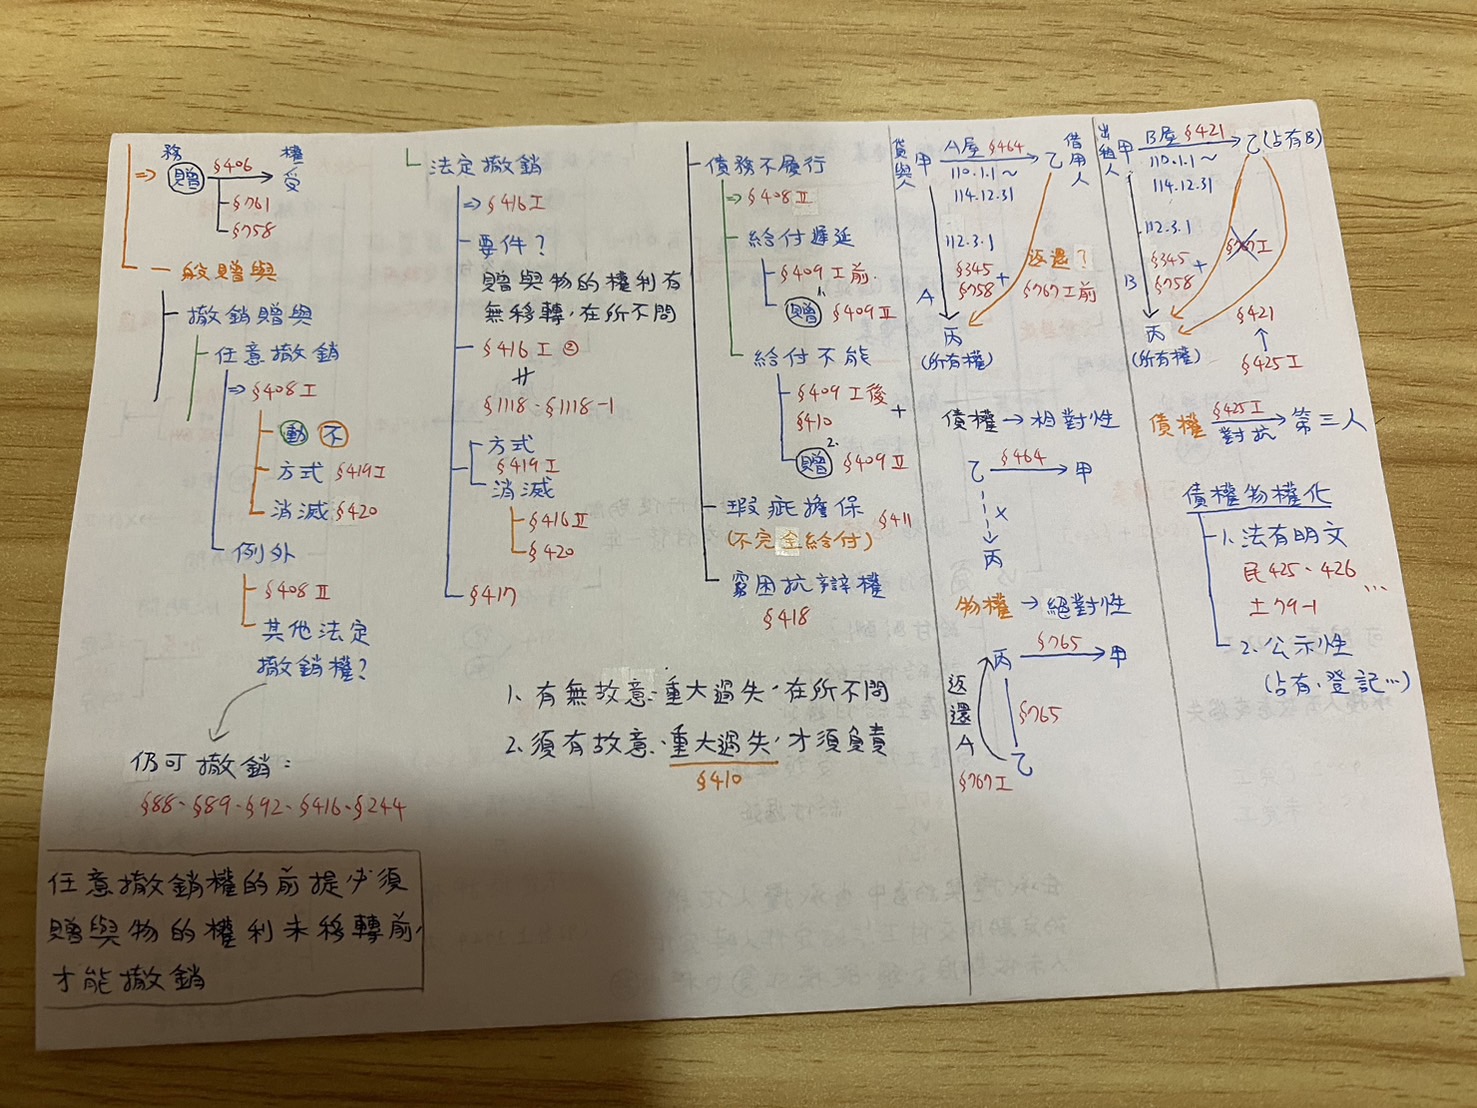 務
權
贈 §406 受
§761
§758
一般贈與
撤銷贈與
任意撤銷
⇒ §408 I
動 不
方式 §419 I
消滅 §420
例外
§408 II
其他法定
撤銷權?
仍可撤銷:
§88、§89、§92、§416、§244
任意撤銷權的前提必須
贈與物的權利未移轉前,
才能撤銷
法定撤銷
⇒ §416 I
要件?
贈與物的權利有
無移轉,在所不問
§416 I ②
§1118、§1118-1
方式
§419 I
消滅
§416 II
§420
§417
債務不履行
⇒ §408 II
給付遲延
§409 I 前.
1.
贈 §409 II
給付不能
§409 I 後 +
§410
2.
贈 §409 II
瑕疵擔保 §411
(不完全給付)
窮困抗辯權
§418
1. 有無故意、重大過失,在所不問
2. 須有故意、重大過失,才須負責
§410
貸與人
甲 A屋 §464 乙
借用人
110.1.1～
114.12.31
112.3.1
§345 +
§758
返還?
§767 I 前
A
丙
(所有權)
債權 → 相對性
乙 §464 甲
x
丙
物權 → 絕對性
丙 §765 甲
返還A
§765
乙
§767 I
出租人
甲 B屋 §421 乙 (占有B)
110.1.1～
114.12.31
112.3.1
§345 +
§758
§767 I
B
丙
(所有權)
§421
↑
§425 I
債權 §425 I 對抗 → 第三人
債權物權化
1. 法有明文
民425、426
土79-1 ...
2. 公示性
(占有、登記...)